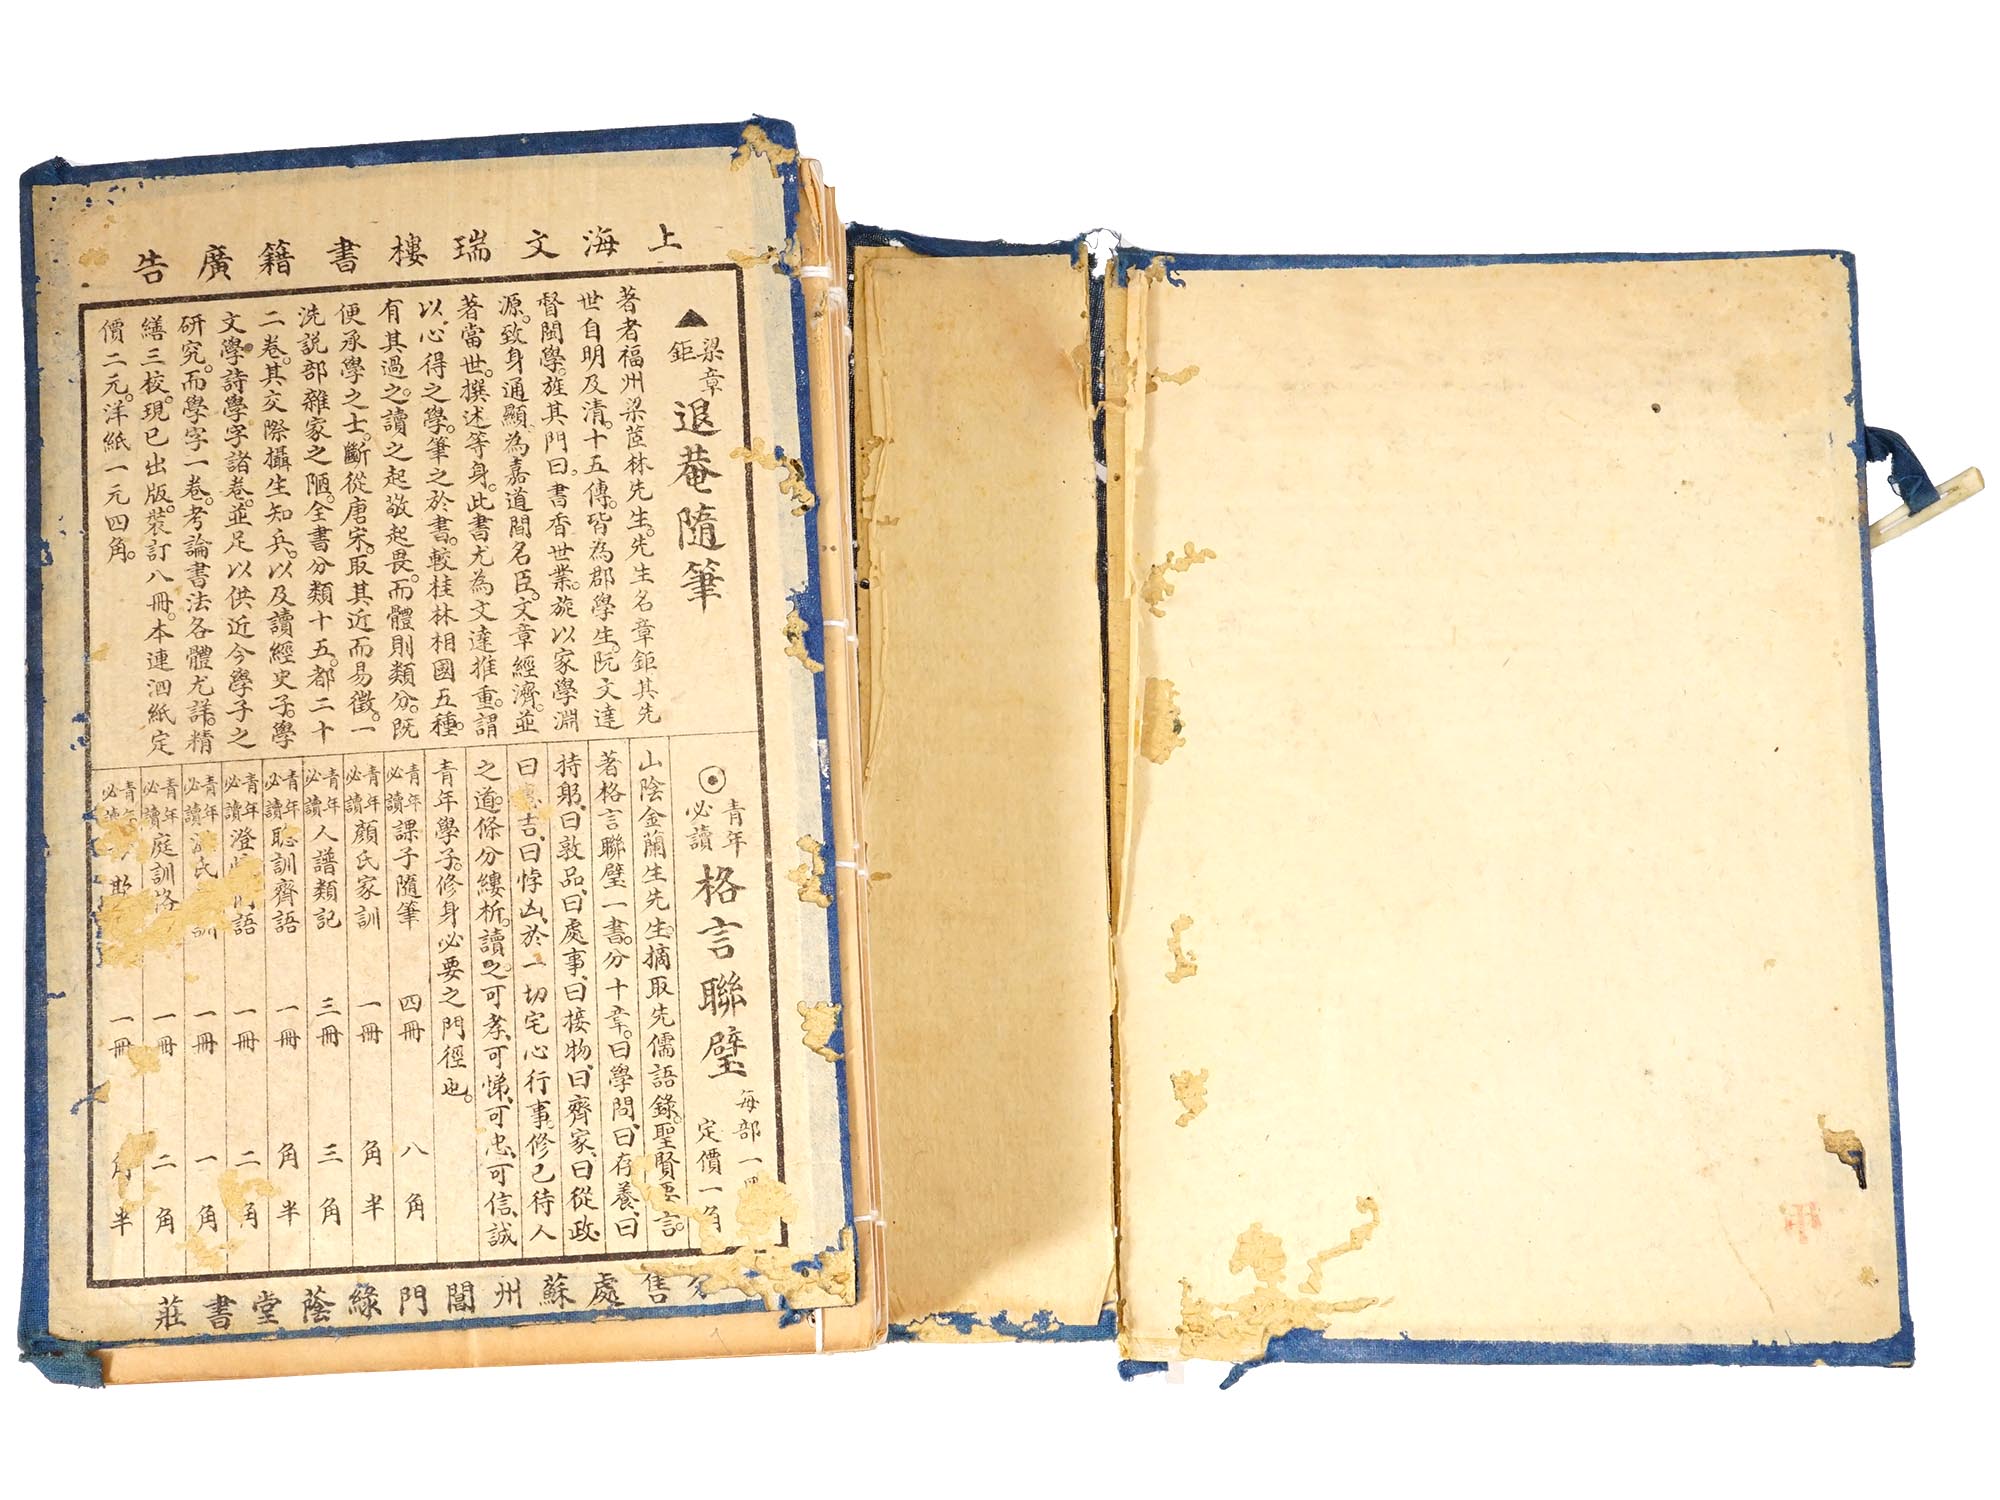 上海文瑞樓書籍廣告
▲梁章鉅退菴隨筆
著者福州梁茝林先生。先生名章鉅其先
世自明及清。十五傳。皆為郡學生。阮文達
督閩學。旌其門曰。書香世業。旋以家學淵
源。致身通顯為嘉道間名臣。文章經濟。並
著當世。撰述等身。此書尤為文達推重。謂
以心得之學。筆之於書。較桂林相國五種。
有其過之。讀之起敬起畏。而體則類分。既
便承學之士。斷從唐宋。取其近而易徵。一
洗說部雜家之陋。全書分類十五。都二十
二卷。其交際攝生知兵。以及讀經史子。學
文學詩學字諸卷。並足以供近今學子之
研究。而學字一卷。考論書法各體尤詳。精
繕三校。現已出版。裝訂八冊。本連泗紙定
價二元。洋紙一元四角。
青年必讀格言聯璧 每部一 定價一角
山陰金蘭生先生。摘取先儒語錄。聖賢 言。
著格言聯璧一書。分十章。曰學問、曰存養、曰
持躬、曰敦品、曰處事、曰接物、曰齊家、曰從政、
曰 吉、曰悖凶、於一切宅心行事、修己待人
之道。條分縷析。讀之。可孝、可悌、可忠、可信、誠
青年學子。修身必要之門徑也。
青年必讀課子隨筆 四冊 八角
青年必讀顏氏家訓 一冊 角半
青年必讀人譜類記 三冊 三角
青年必讀聰訓齊語 一冊 角半
青年必讀澄 語 一冊 二角
青年必讀 氏 訓 一冊 一角
青年必讀庭訓格 一冊 二角
青年必讀 一冊 角半
售處蘇州閶門綠蔭堂書莊